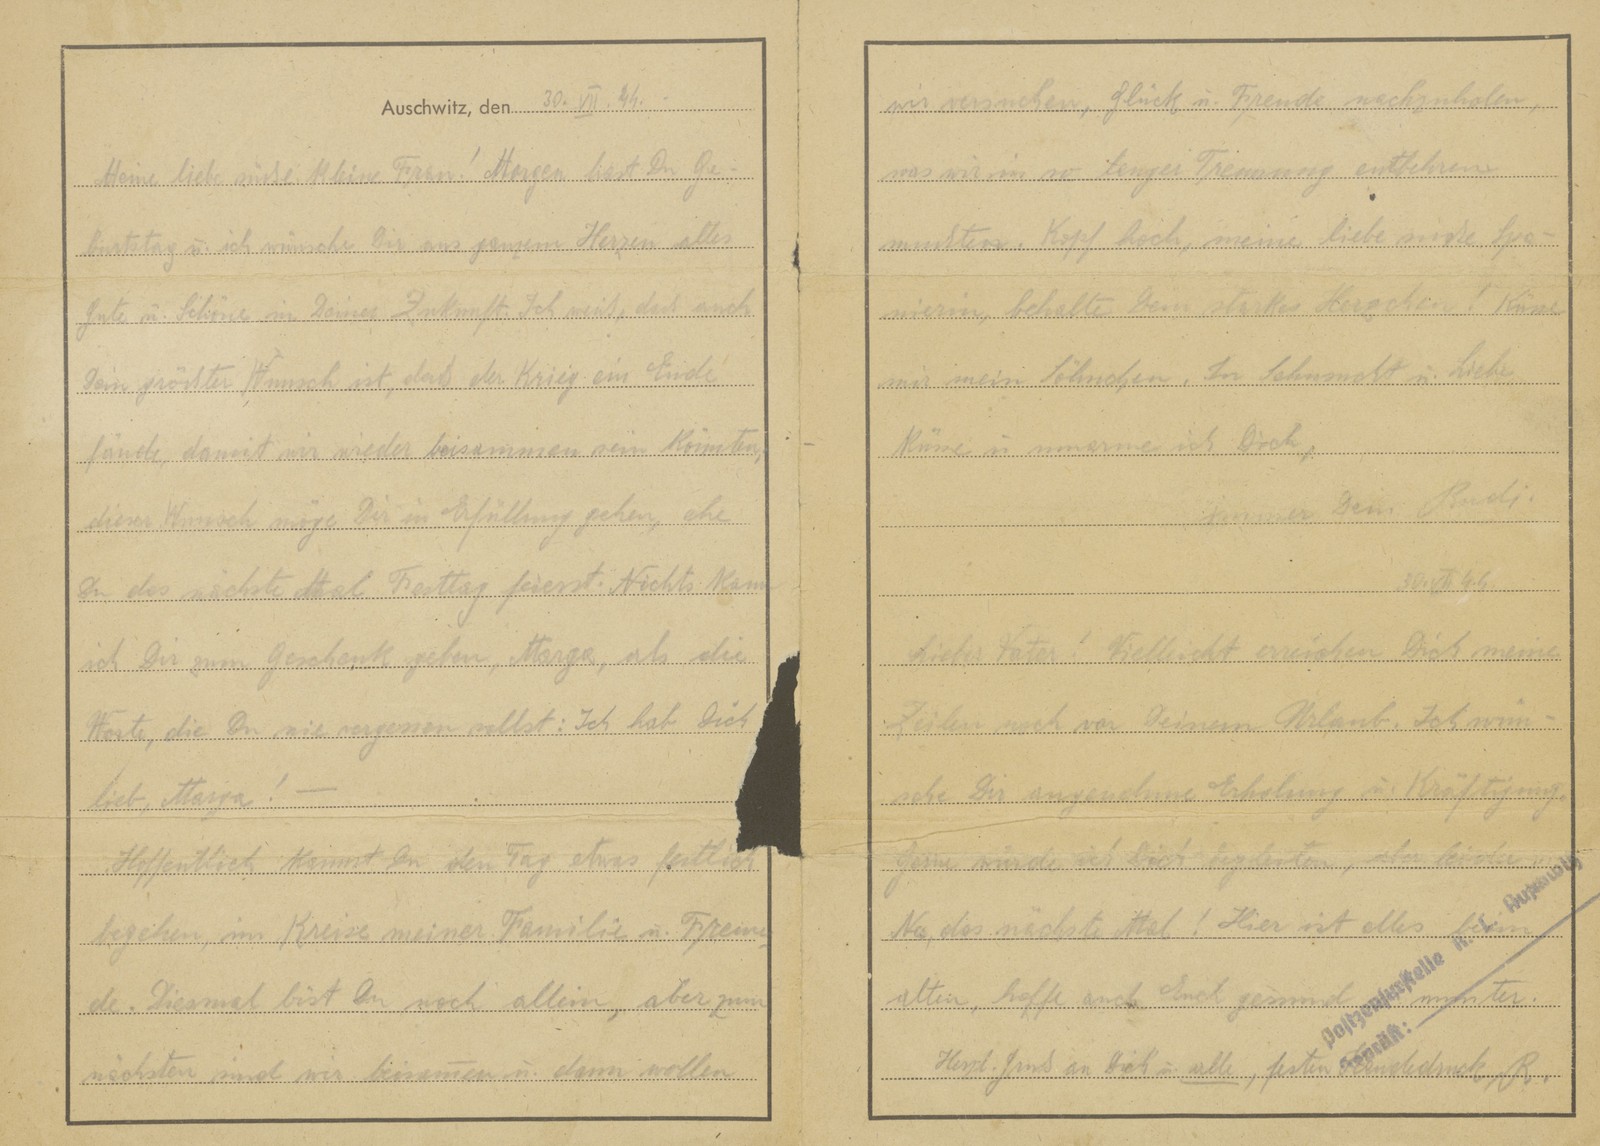 Auschwitz, den 30. VII. 44.
Meine liebe süsse kleine Frau! Morgen hast Du Ge-
burtstag u. ich wünsche Dir aus ganzem Herzen alles
Gute u. Schöne in Deiner Zukunft. Ich weiß, daß auch
Dein größter Wunsch ist, daß der Krieg ein Ende
fände, damit wir wieder beisammen sein könnten,
dieser Wunsch möge Dir in Erfüllung gehen, ehe
Du das nächste Mal Festtag feierst. Nichts kann
ich Dir zum Geschenk geben, Marga, als die
Worte, die Du nie vergessen sollst: Ich hab Dich
lieb, Marga! —
Hoffentlich kannst Du den Tag etwas festlich
begehen, im Kreise meiner Familie u. Freun-
de. Diesmal bist Du noch allein, aber zum
nächsten sind wir beisamen u. dann wollen
wir versuchen, Glück u. Freude nachzuholen,
was wir in so langer Trennung entbehren
mussten. Kopf hoch, meine liebe süsse Spa-
nierin, behalte Dein starkes Herzchen! Küsse
mir mein Söhnchen. In Sehnsucht u. Liebe
küsse u umarme ich Dich,
immer Dein Rudi.
30. VII 44.
Lieber Vater! Vielleicht erreichen Dich meine
Zeilen noch vor Deinem Urlaub. Ich wün-
sche Dir angenehme Erholung u. Kräftigung.
Gerne würde ich Dich begleiten, aber
Na, das nächste Mal! Hier ist alles beim
alten, hoffe auch Euch gesund munter.
Herzl. Gruß an Dich u. alle, festen Händedruck, R.
Postzensurstelle K. L. Auschwitz
Geprüft: